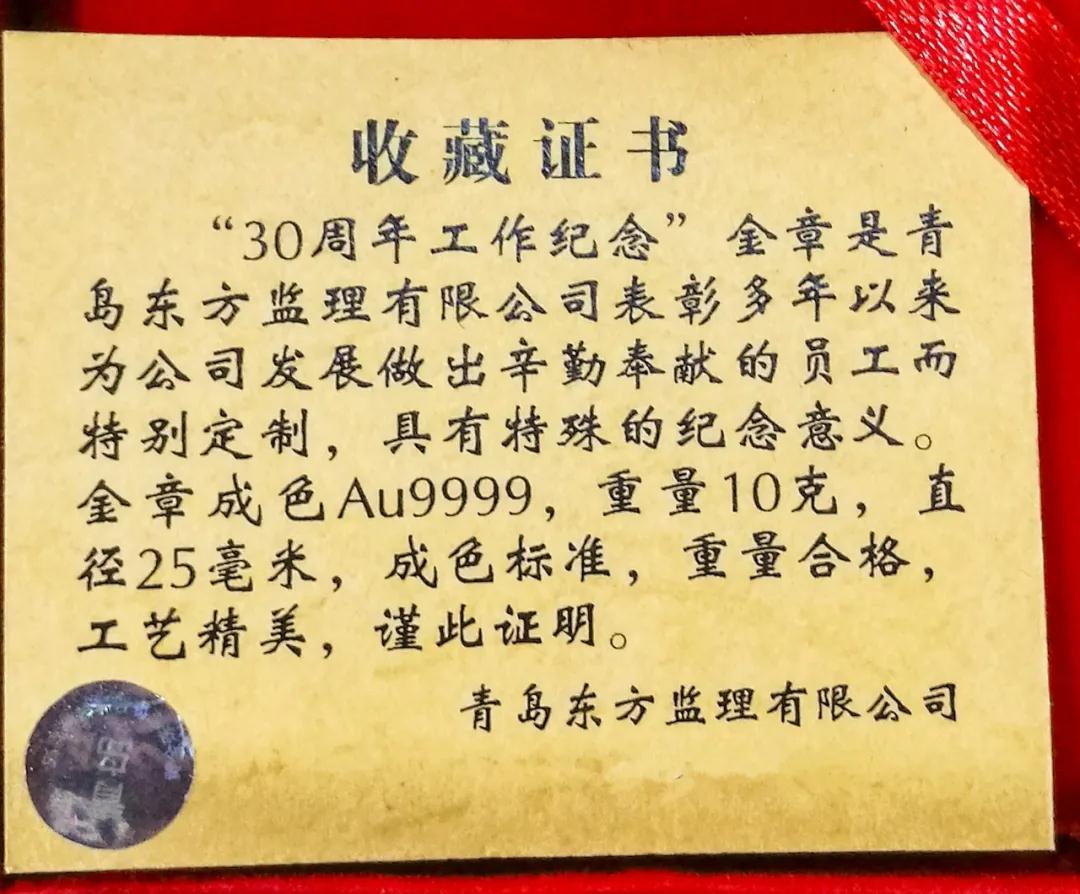 收藏证书
“30周年工作纪念”金章是青
岛东方监理有限公司表彰多年以来
为公司发展做出辛勤奉献的员工而
特别定制，具有特殊的纪念意义。
金章成色Au9999，重量10克，直
径25毫米，成色标准，重量合格，
工艺精美，谨此证明。
青岛东方监理有限公司